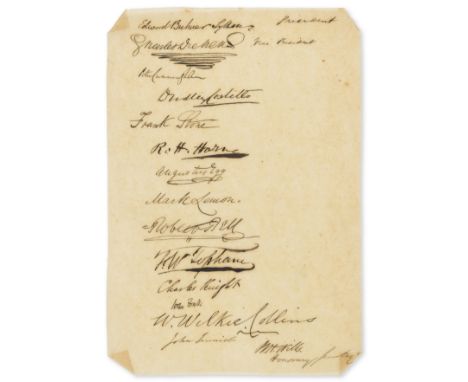 Edward Bulwer Lytton President
Charles Dickens Vice President
Peter Cunningham
Dudley Costello
Frank Stone
R. H. Horne
Augustus Egg
Mark Lemon.
Robert Bell
F W Topham
Charles Knight
W. Wilkie Collins
John Tenniel W H Wills
Honorary